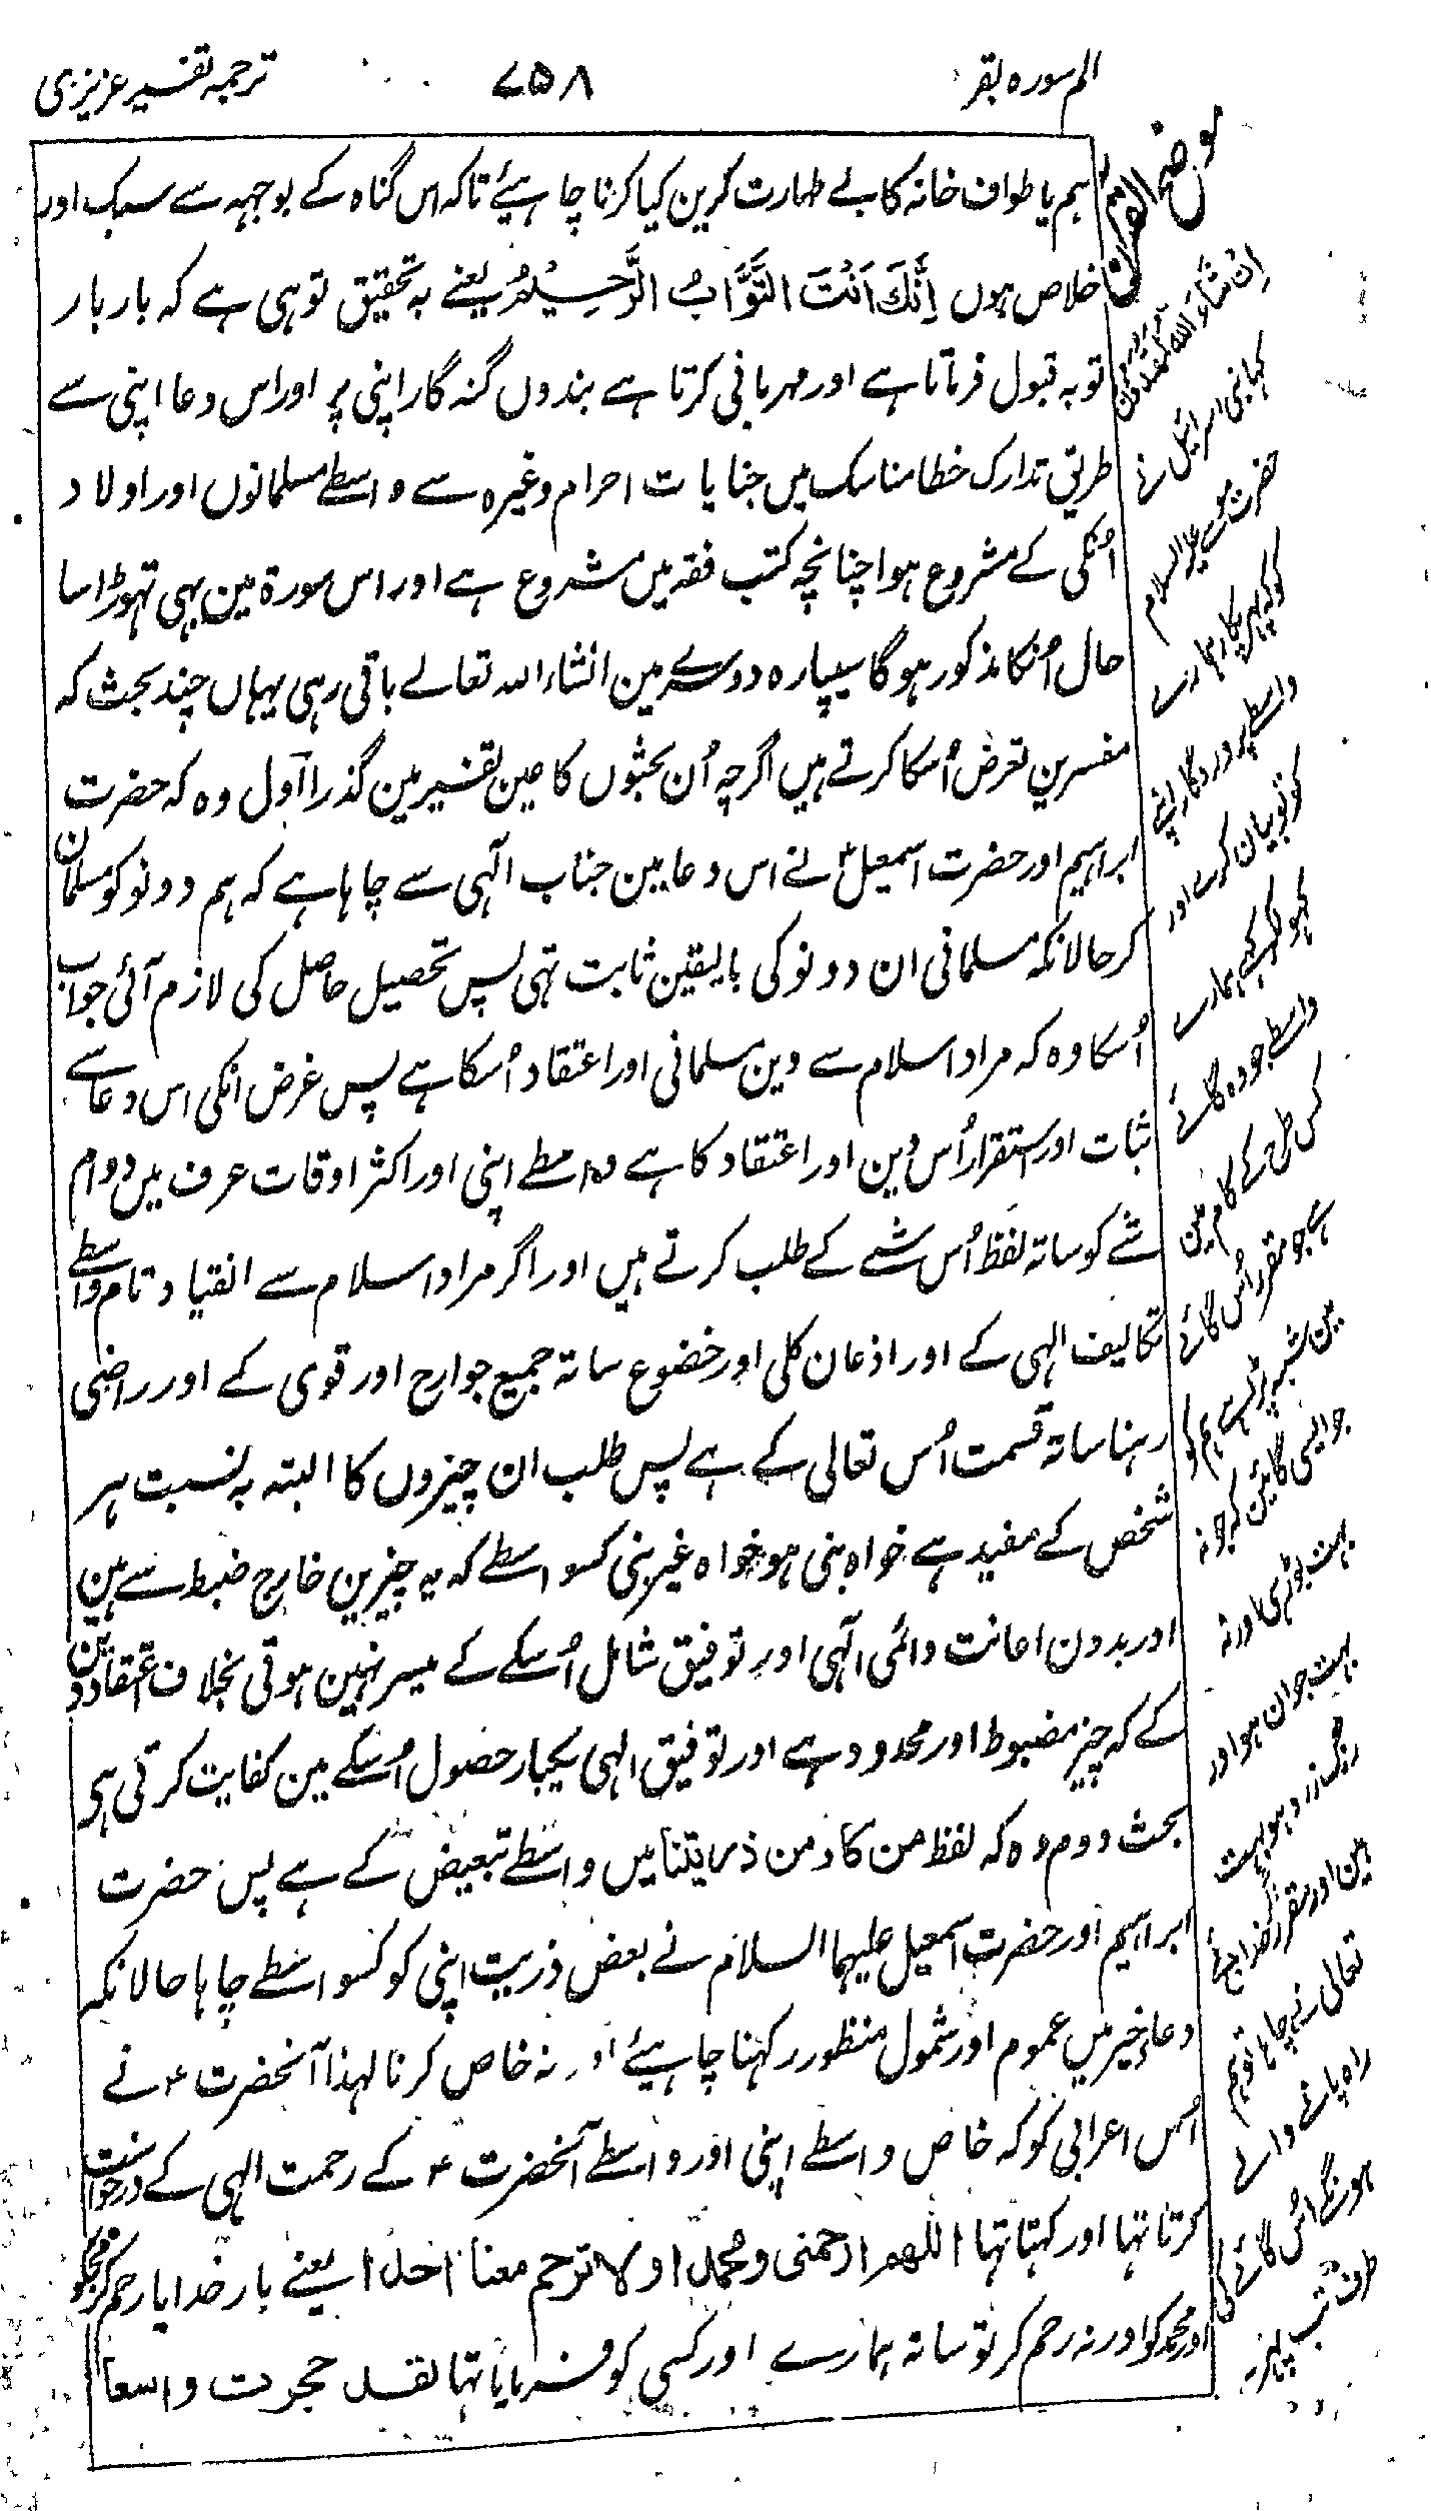 الم سورہ بقر
۷۵۸
ترجمہ تفسیر عزیزی
ہم یا طواف خانہ کا بے طہارت کرین کیا کرنا چاہیئے تاکہ اس گناہ کے بوجہہ سے سبک اور
خلاص ہوں اِنَّكَ اَنْتَ التَّوَّابُ الرَّحِیْمُ یعنے بہ تحقیق تو ہی ہے کہ بار بار
توبہ قبول فرماتا ہے اور مہربانی کرتا ہے بندوں گنہ گار اپنی پر اور اس دعا اپنی سے
طریق تدارک خطا مناسک میں جنایات احرام وغیرہ سے واسطے مسلمانوں اور اولاد
اُنکی کے مشروع ہوا چنانچہ کتب فقہ میں مشروع ہے اور اس سورۃ مین بہی تہوڑا سا
حال اُنکا مذکور ہوگا سیپارہ دوسرے مین انشاء اللہ تعالے باقی رہی یہاں چند بحث کہ
مفسرین تعرض اُسکا کرتے ہیں اگرچہ اُن بحثوں کا عین تفسیر مین گذرا اول وہ کہ حضرت
ابراہیم اور حضرت اسمعیلؑ نے اس دعا مین جناب الٰہی سے چاہا ہے کہ ہم دونو کو مسلمان
کر حالانکہ مسلمانی ان دونو کی بالیقین ثابت تہی پس تحصیل حاصل کی لازم آئی جواب
اُسکا وہ کہ مراد اسلام سے دین مسلمانی اور اعتقاد اُسکا ہے پس غرض انکی اس دعا سے
ثبات اور استقرار اُس دین اور اعتقاد کا ہے واسطے اپنی اور اکثر اوقات عرف میں دوام
شے کو ساتہ لفظ اُس شے کے طلب کرتے ہیں اور اگر مراد اسلام سے انقیاد تام واسطے
تکالیف الہی کے اور اذعان کلی اور خضوع ساتہ جمیع جوارح اور قوی کے اور راضی
رہنا ساتہ قسمت اُس تعالی کے ہے پس طلب ان چیزوں کا البتہ بہ نسبت ہر
شخص کے مفید ہے خواہ نبی ہو خواہ غیر نبی کسواسطے کہ یہ چیزین خارج ضبط سے ہین
اور بدون اعانت دائمی الٰہی اور توفیق شامل اُسکے کے میسر نہین ہوتی بخلاف اعتقاد دین
کے کہ چیز مضبوط اور محدود ہے اور توفیق الہی یکبار حصول اُسکے مین کفایت کرتی ہی
بحث دوم وہ کہ لفظ من کا و من ذریتنا میں واسطے تبعیض کے ہے پس حضرت
ابراہیم اور حضرت اسمعیل علیہما السلام نے بعض ذریت اپنی کو کسواسطے چاہا حالانکہ
دعاے خیر میں عموم اور شمول منظور رکہنا چاہیئے اور نہ خاص کرنا لہذا آنحضرت ؐ نے
اُس اعرابی کو کہ خاص واسطے اپنی اور واسطے آنحضرت ؐ کے رحمت الہی کے درخواست
کرتا تہا اور کہتا تہا اللهم ارحمنی و محمدا و لا ترحم معنا احدا یعنے بار خدایا رحم کر مجکو
اور محمد کو اور نہ رحم کر تو ساتہ ہمارے اور کسی کو فرمایا تہا لقد حجرت واسعا
موضح القرآن
کہا بنی اسرائیل نے
حضرت موسے علیہ السلام
کو کہ پہر پکار ہمارے
واسطے پروردگار اپنے
کو تو بیان کرے اور
کہو کہ ہمارے
واسطے جو وہ گائے
کس طرح کے کام مین
ہے جو مقرر اُس گائے
مین شبہ پڑا ہے ہم کو
جو ایسی گائین کہ جو نہ
بہت بوڑہی اور نہ
بہت جوان ہو اور
رنگ زرد ہو بہت
ہین اور مقرر خدا جے
تعالی نے چاہا تو ہم
راہ پانے والے
ہونگے اُس گائے کی
طرف تب